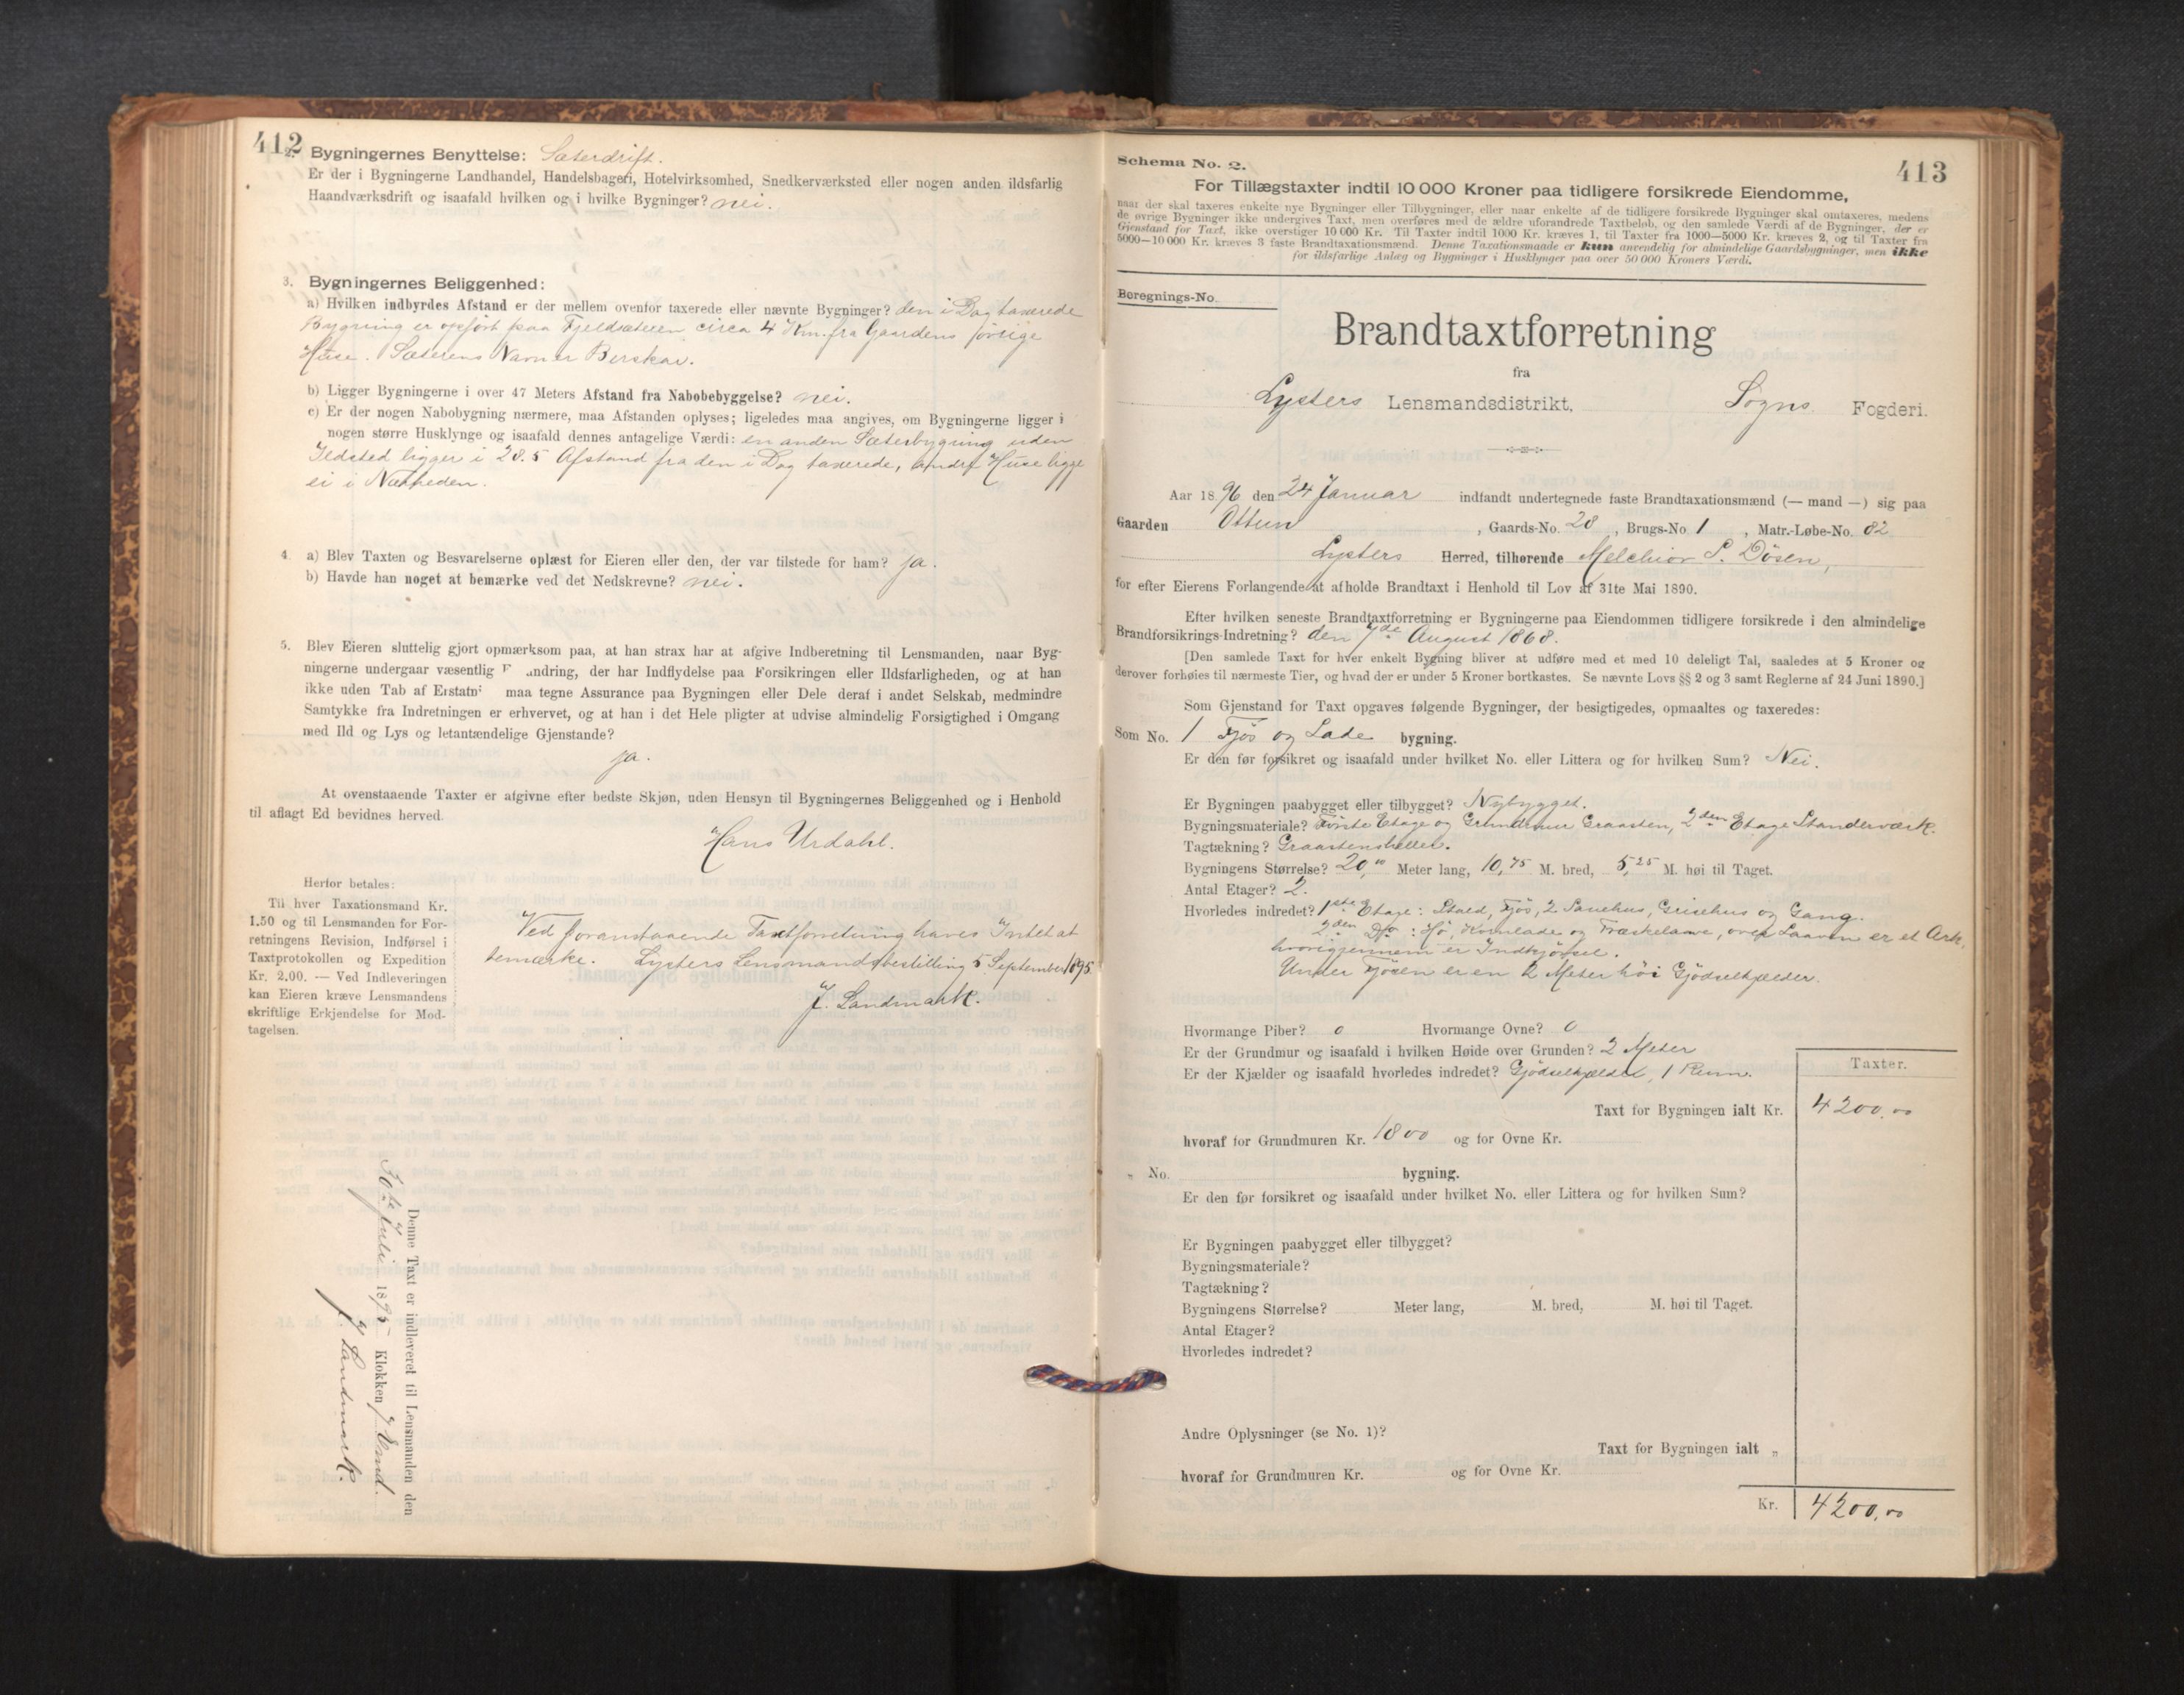 412
2. Bygningernes Benyttelse: Sæterdrift.
Er der i Bygningerne Landhandel, Handelsbageri, Hotelvirksomhed, Snedkerværksted eller nogen anden ildsfarlig
Haandværksdrift og isaafald hvilken og i hvilke Bygninger? nei.
3. Bygningernes Beliggenhed:
a) Hvilken indbyrdes Afstand er der mellem ovenfor taxerede eller nævnte Bygninger? den i Dag taxerede
Bygning er opført paa Fjeldsæteren circa 4 Km. fra Gaardens øvrige
Huse. Sæterens Navn er Berskar.
b) Ligger Bygningerne i over 47 Meters Afstand fra Nabobebyggelse? nei.
c) Er der nogen Nabobygning nærmere, maa Afstanden oplyses; ligeledes maa angives, om Bygningerne ligger i
nogen større Husklynge og isaafald dennes antagelige Værdi: en anden Sæterbygning uden
Ildsted ligger i 28.5 Afstand fra den i Dag taxerede, andre Huse ligge
ei i Nærheden.
4. a) Blev Taxten og Besvarelserne oplæst for Eieren eller den, der var tilstede for ham? ja.
b) Havde han noget at bemærke ved det Nedskrevne? nei.
5. Blev Eieren sluttelig gjort opmærksom paa, at han strax har at afgive Indberetning til Lensmanden, naar Byg-
ningerne undergaar væsentlig F andring, der har Indflydelse paa Forsikringen eller Ildsfarligheden, og at han
ikke uden Tab af Erstatn maa tegne Assurance paa Bygningen eller Dele deraf i andet Selskab, medmindre
Samtykke fra Indretningen er erhvervet, og at han i det Hele pligter at udvise almindelig Forsigtighed i Omgang
med Ild og Lys og letantændelige Gjenstande?
ja.
At ovenstaaende Taxter er afgivne efter bedste Skjøn, uden Hensyn til Bygningernes Beliggenhed og i Henhold
til aflagt Ed bevidnes herved.
Hans Urdahl.
Herfor betales:
Til hver Taxationsmand Kr.
1.50 og til Lensmanden for For-
retningens Revision, Indførsel i
Taxtprotokollen og Expedition
Kr. 2.00. — Ved Indleveringen
kan Eieren kræve Lensmandens
skriftlige Erkjendelse for Mod-
tagelsen.
Ved foranstaaende Taxtforretning haves Intet at
bemærke. Lysters Lensmandsbestilling 5 September 1895.
J. Landmark.
Denne Taxt er indleveret til Lensmanden den
30te Juli 1895 Klokken 7 Emd.
J Landmark.
413
Schema No. 2.
For Tillægstaxter indtil 10 000 Kroner paa tidligere forsikrede Eiendomme,
naar der skal taxeres enkelte nye Bygninger eller Tilbygninger, eller naar enkelte af de tidligere forsikrede Bygninger skal omtaxeres, medens
de øvrige Bygninger ikke undergives Taxt, men overføres med de ældre uforandrede Taxtbeløb, og den samlede Værdi af de Bygninger, der er
Gjenstand for Taxt, ikke overstiger 10 000 Kr. Til Taxter indtil 1000 Kr. kræves 1, til Taxter fra 1000—5000 Kr. kræves 2, og til Taxter fra
5000—10 000 Kr. kræves 3 faste Brandtaxationsmænd. Denne Taxationsmaade er kun anvendelig for almindelige Gaardsbygninger, men ikke
for ildsfarlige Anlæg og Bygninger i Husklynger paa over 50 000 Kroners Værdi.
Beregnings-No.
Brandtaxtforretning
fra
Lysters Lensmandsdistrikt, Sogns Fogderi.
Aar 1896 den 24 Januar indfandt undertegnede faste Brandtaxationsmænd (— mand —) sig paa
Gaarden Ottum, Gaards-No. 28, Brugs-No 1, Matr.-Løbe-No. 82
Lysters Herred, tilhørende Melchior S. Døsen,
for efter Eierens Forlangende at afholde Brandtaxt i Henhold til Lov af 31te Mai 1890.
Efter hvilken seneste Brandtaxtforretning er Bygningerne paa Eiendommen tidligere forsikrede i den almindelige
Brandforsikrings-Indretning? den 7de August 1868.
[Den samlede Taxt for hver enkelt Bygning bliver at udføre med et med 10 deleligt Tal, saaledes at 5 Kroner og
derover forhøies til nærmeste Tier, og hvad der er under 5 Kroner bortkastes. Se nævnte Lovs §§ 2 og 3 samt Reglerne af 24 Juni 1890.]
Som Gjenstand for Taxt opgaves følgende Bygninger, der besigtigedes, opmaaltes og taxeredes:
Som No. 1 Fjøs og Lade bygning.
Er den før forsikret og isaafald under hvilket No. eller Littera og for hvilken Sum? Nei.
Er Bygningen paabygget eller tilbygget? Nybygget.
Bygningsmateriale? Første Etage og Grundmur Graasten, 2den Etage Standerværk.
Tagtækning? Graastensheller.
Bygningens Størrelse? 20,00 Meter lang, 10,75 M. bred, 5,25 M. høi til Taget.
Antal Etager? 2.
Hvorledes indredet? 1ste Etage: Stald, Fjøs, 2 Sauehus, Grisehus og Gang.
2den Do: Hø, Kornlade og Træskelaave, over Laaven er et Ark,
hvorigjennem er Indkjørsel.
Under Fjøsen er en 2 Meter høi Gjødselkjelder.
Hvormange Piber? 0 Hvormange Ovne? 0
Er der Grundmur og isaafald i hvilken Høide over Grunden? 2 Meter
Er der Kjælder og isaafald hvorledes indredet? Gjødselkjelder, 1 Rum.
Taxter.
Taxt for Bygningen ialt Kr. 4200,00
hvoraf for Grundmuren Kr. 1800 og for Ovne Kr.
" No. bygning.
Er den før forsikret og isaafald under hvilket No. eller Littera og for hvilken Sum?
Er Bygningen paabygget eller tilbygget?
Bygningsmateriale?
Tagtækning?
Bygningens Størrelse? Meter lang, M. bred, M. høi til Taget.
Antal Etager?
Hvorledes indredet?
Andre Oplysninger (se No. 1)?
Taxt for Bygningen ialt "
hvoraf for Grundmuren Kr. og for Ovne Kr.
Kr. 4200,00